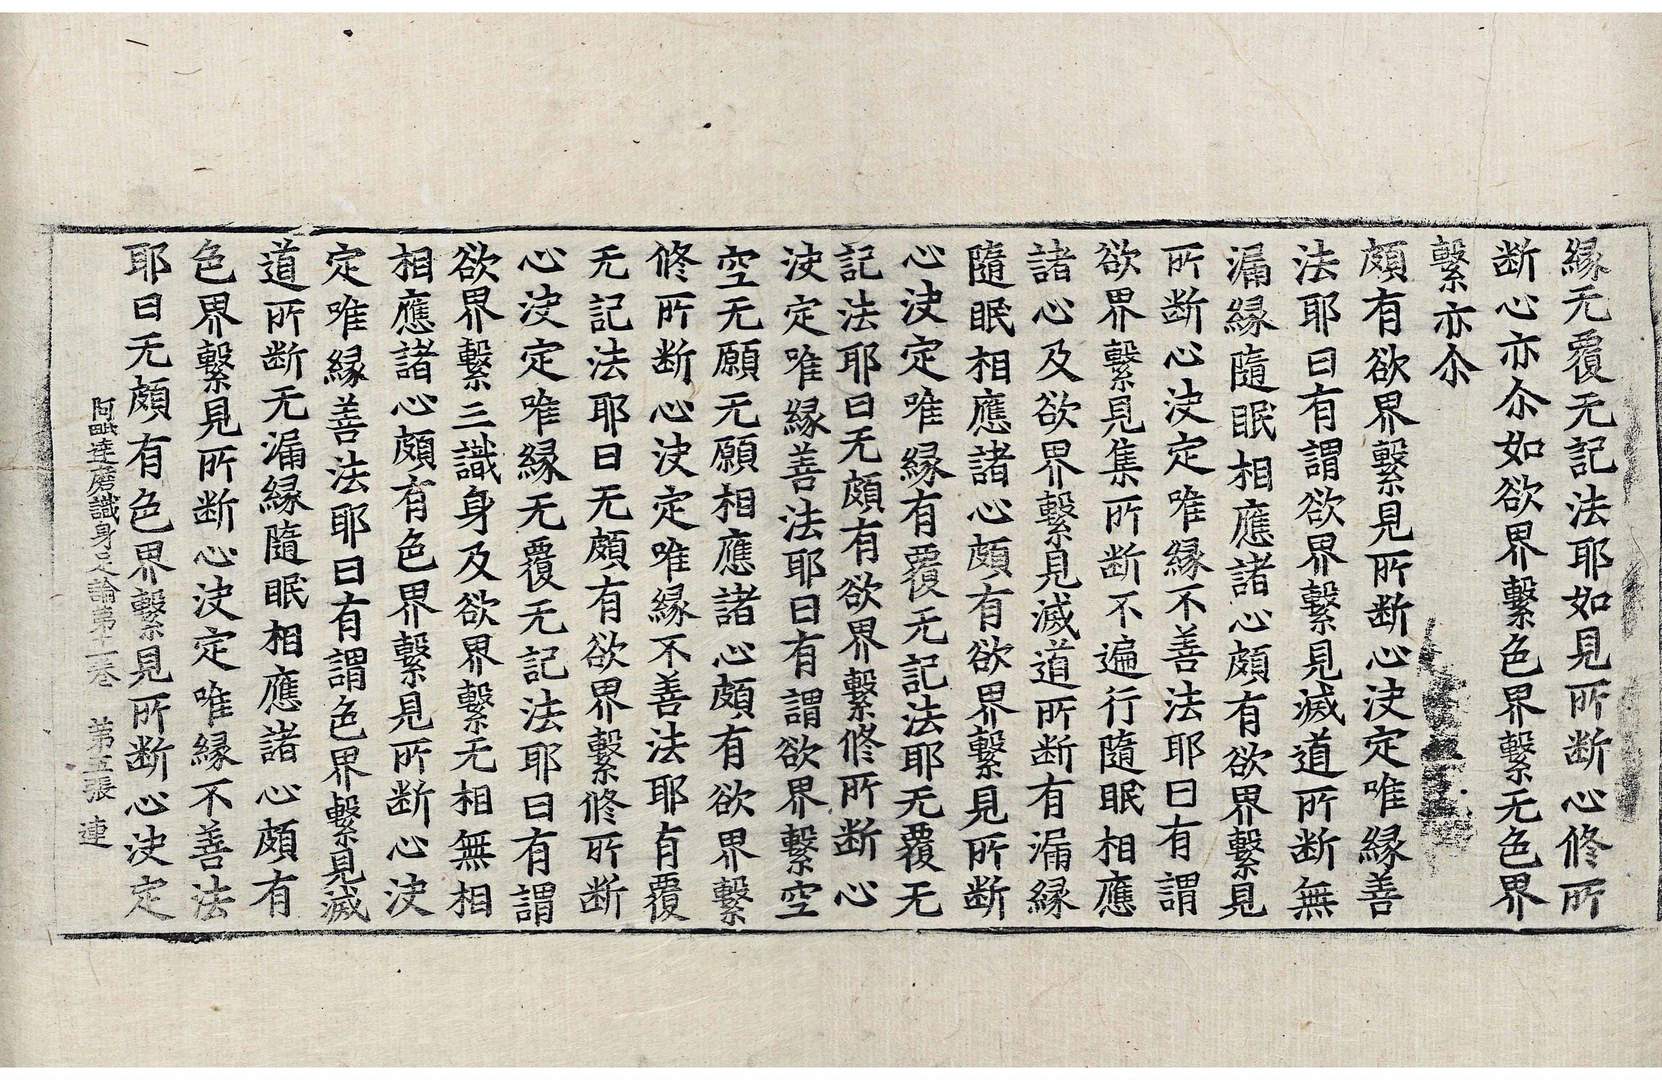 縁无覆无記法耶如見所断心修所
断心亦尒如欲界繫色界繫无色界
繫亦尒
頗有欲界繫見所断心決定唯縁善
法耶曰有謂欲界繫見滅道所断無
漏縁隨眠相應諸心頗有欲界繫見
所断心決定唯縁不善法耶曰有謂
欲界繫見集所断不遍行隨眠相應
諸心及欲界繫見滅道所断有漏縁
隨眠相應諸心頗有欲界繫見所断
心決定唯縁有覆无記法耶无覆无
記法耶曰无頗有欲界繫修所断心
決定唯縁善法耶曰有謂欲界繫空
空无願无願相應諸心頗有欲界繫
修所断心決定唯縁不善法耶有覆
无記法耶曰无頗有欲界繫修所断
心決定唯縁无覆无記法耶曰有謂
欲界繫三識身及欲界繫无相無相
相應諸心頗有色界繫見所断心決
定唯縁善法耶曰有謂色界繫見滅
道所断无漏縁隨眠相應諸心頗有
色界繫見所断心決定唯縁不善法
耶曰无頗有色界繫見所断心決定
阿毗達磨識身足論第十一卷 第五張 連